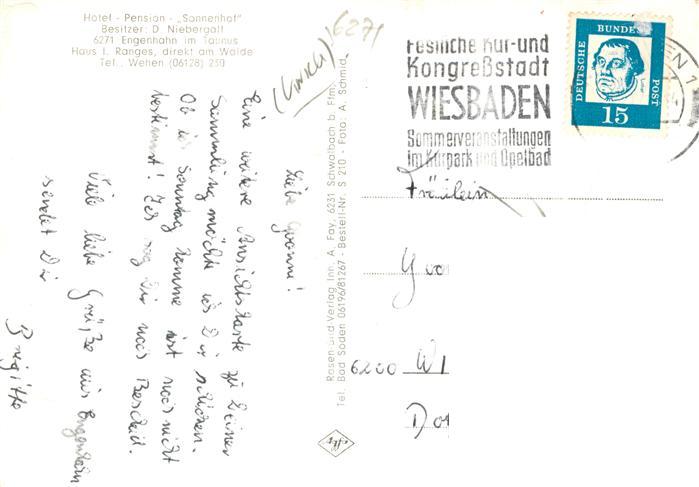 Hotel - Pension - „Sonnenhof"
Besitzer: D. Niebergall
6271 Engenhahn im Taunus
Haus I. Ranges, direkt am Walde
Tel.: Wehen (06128) 250
6271
Liebe Yvonne!
Eine weitere Ansichtskarte zu Deiner
Sammlung möchte ich Dir schicken.
Ob ich Sonntag komme ist noch nicht
bestimmt! Ich sag Dir noch Bescheid.
Viele liebe Grüße aus Engenhahn
sendet Dir
Brigitte
Rosen-und Verlag Inh. A. Fay, 6231 Schwalbach b. Ffm.
Tel. Bad Soden 06196/81267 - Bestell-Nr. S 210 - Foto: A. Schmid
Festliche Kur-und
Kongreßstadt
WIESBADEN
Sommerveranstaltungen
im Kurpark und Opelbad
DEUTSCHE BUNDESPOST
15
Fräulein
Yvo
6200 WI
Do